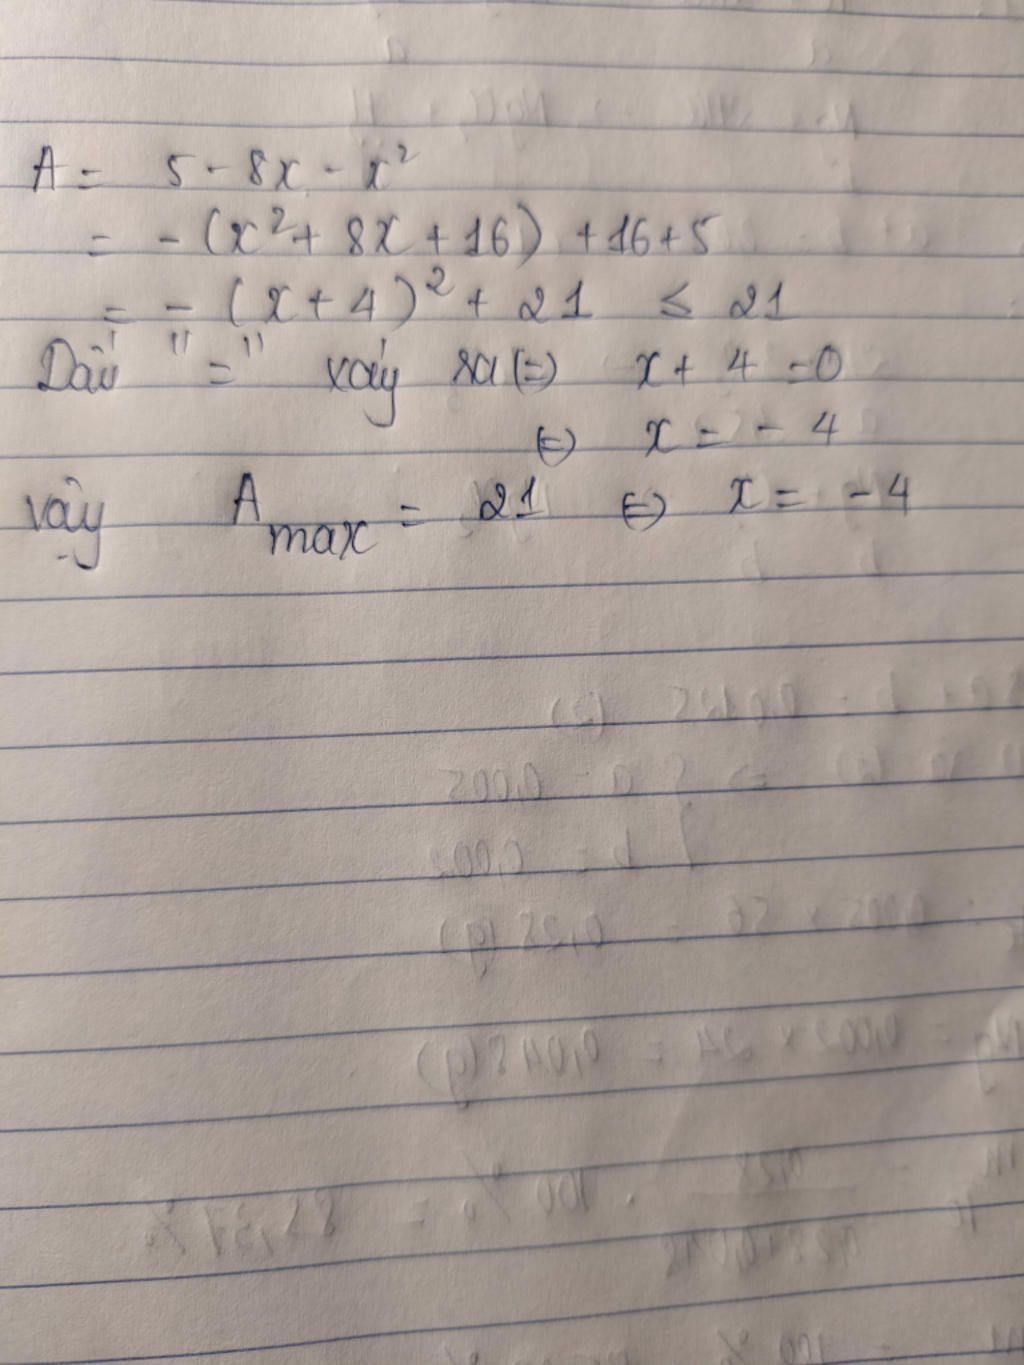 A = 5 - 8x - x²
= - (x² + 8x + 16) + 16 + 5
= - (x + 4)² + 21 ≤ 21
Dấu "=" xảy ra (=) x + 4 = 0
(=) x = - 4
vậy A max = 21 (=) x = - 4